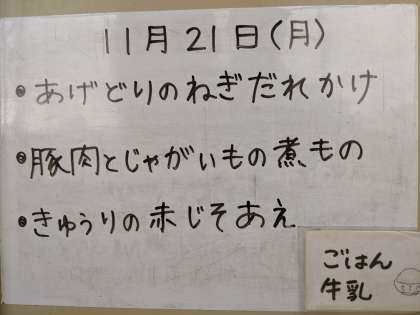 11月21日(月)
・あげどりのねぎだれかけ
・豚肉とじゃがいもの煮もの
・きゅうりの赤じそあえ
ごはん
牛乳